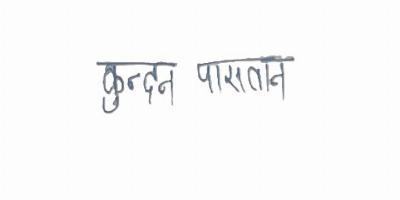 कुन्दन पासतान